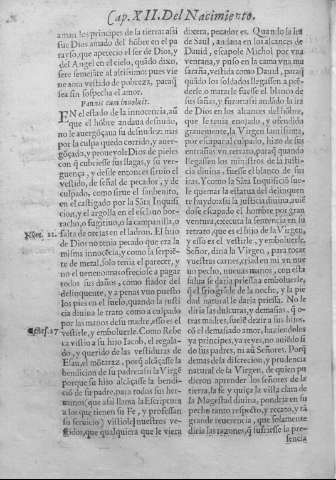 Cap. XII. Del Nacimiento.
aman los principes de la tierra: así
fue Dios amado del hõbre en el pa
rayso, que apetecio el ser de Dios, y
del Angel en el cielo, quãdo dixo,
sere semejãte al altissimo: pues vie
ne aora vestido de pobreza, paraq̃
sea sin sospecha el amor.
Pannis eum inuoluit.
EN el estado de la innocencia, aũ
que el hõbre andaua desnudo,
no le auergõçaua su desnudez: mas
por la culpa quedo corrido, y auer-
gõçado, y proueyole Dios de pieles
con q̃ cubriesse sus llagas, y su ver-
guença, y desde entonces siruio el
vestido, de señal de pecador, y de
culpado, como sirue el sanbenito,
en el castigado por la Sãta Inquisi
cion, y el argolla en el esclauo bor-
racho, o fugitiuo, o la campanilla, o
falta de orejas en el ladron. El hijo
de Dios no tenia pecado que era la
misma innocẽcia, y como la serpiẽ-
te de metal, solo tenia el parecer, y
no el veneno mas ofreciose a pagar
todos sus daños, como fiador del
delinquente, y a penas vuo puesto
los pies en el suelo, quando la justi
cia diuina le trato como a culpado
por las manos de su madre, esso es el
vestirle, y emboluerle. Como Rebe
ca vistio a su hijo Iacob, el regala-
do, y querido de las vestiduras de
Esau, el mõtaraz. porq̃ alcãçasse la
bendicion de su padre: assi la Virgẽ
porque su hijo alcãçasse la bendi-
ció de su padre, para todos sus her-
manos (que assi llama la Escriptura
a los que tienen su Fe, y professan
su seruicio) vistiole nuestros ve-
stidos, que qualquiera que le viera
dixera, pecador es. Quando la ira
de Saul, andaua en los alcances de
Dauid, escapole Michol por vna
ventana, y puso en la cama vna mu
saraña, vestida como Dauid, paraq̃
quãdo los soldados llegassen a pẽ-
derle, o matarle fuesse el blanco de
sus sañas, y furor: assi andãdo la ira
de Dios en los alcances del hõbre,
que le tenia enojado, y ofendido
grauemente, la Virgen sanctissima,
por escapar al culpado, hizo de sus
entrañas, vn retrato, paraq̃ quando
llegassen los ministros de la justi
cia diuina, fuesse el blanco de sus
iras. Y como la Sãta Inquisicïõ sue-
le quemar la estatua del delinquen
te huydo, assi la justicia diuina, aũq̃
dessee escapado el hombre por gran
ventura, executa la sentencia en su
retrato, que es el hijo de la Virgen,
y esso es el vestirle, y emboluerle.
Señor, diria la Virgen, para tocar
nuestras carnes, criadas mi en nue
uo pecho, nueuas manos, con esta
falsa se daria priessa a emboluerle,
q̃ el frio grãde de la noche, y la pie
dad natural le daria priessa. No le
diria las dulçuras, y demasias, q̃ o-
tras madres, suelẽ dezir a sus hijos,
cõ el demasiado amor, haziendoles
ya principes, ya reyes, no auiẽdo si
do sus padres, ni aũ Señores. Porq̃
demas de la discrecion, y prudencia
natural de la Virgen, de quien pu
dieron aprender los señores de la
tierra, la fe y quiça la vista clara de
la Magestad diuina, pondria en su
pecho tanto respecto, y recato, y tã
grande reuerencia, que solamente
diria las razones, q̃ sufriesse la pre-
sencia
Nũm. 21.
Genes. 27